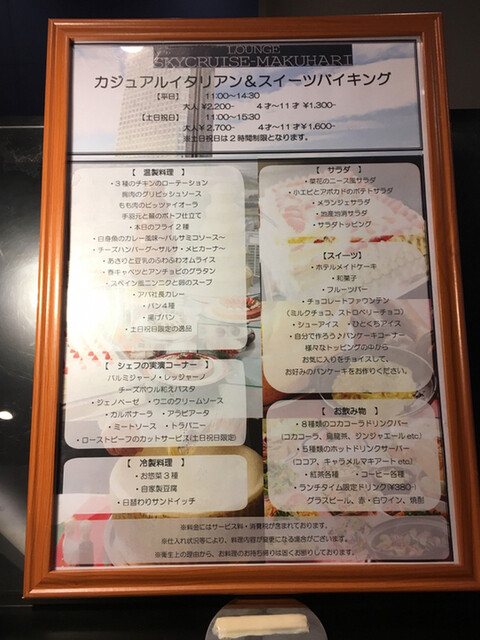 LOUNGE
SKYCRUISE-MAKUHARI
カジュアルイタリアン＆スイーツバイキング
【平日】 11:00～14:30
大人 ¥2,200- 4才～11才 ¥1,300-
【土日祝日】 11:00～15:30
大人 ¥2,700- 4才～11才 ¥1,600-
※土日祝日は２時間制限となります。
【 温製料理 】
・３種のチキンのローテーション
胸肉のグリビッシュソース
もも肉のピッツァイオーラ
手羽元と腸のポトフ仕立て
・本日のフライ２種
・白身魚のカレー風味～バルサミコソース～
・チーズハンバーグ～サルサ・メヒカーナ～
・あさりと豆乳のふわふわオムライス
・春キャベツとアンチョビのグラタン
・スペイン風ニンニクと卵のスープ
・アパ社長カレー
・パン４種
・揚げパン
・土日祝日限定の逸品
【 シェフの実演コーナー 】
パルミジャーノ・レッジャーノ
チーズボウル和えパスタ
・ジェノベーゼ ・ウニのクリームソース
・カルボナーラ ・アラビアータ
・ミートソース ・トラパニー
・ローストビーフのカットサービス(土日祝日限定)
【 冷製料理 】
・お惣菜３種
・自家製豆腐
・日替わりサンドイッチ
【 サラダ 】
・菜花のニース風サラダ
・小エビとアボカドのポテトサラダ
・メランジェサラダ
・地産地消サラダ
・サラダトッピング
【スイーツ】
・ホテルメイドケーキ
・和菓子
・フルーツバー
・チョコレートファウンテン
（ミルクチョコ、ストロベリーチョコ）
・シューアイス ・ひとくちアイス
・自分で作ろう♪パンケーキコーナー
様々なトッピングの中から
お気に入りをチョイスして、
お好みのパンケーキをお作りください。
【 お飲み物 】
・８種類のコカコーラドリンクバー
（コカコーラ、烏龍茶、ジンジャエール etc）
・５種類のホットドリンクサーバー
（ココア、キャラメルマキアート etc）
・紅茶各種 ・コーヒー各種
・ランチタイム限定ドリンク(¥380-)
グラスビール、赤・白ワイン、焼酎
※料金にはサービス料・消費税が含まれております。
※仕入れ状況等により、料理内容が変更になる場合がございます。
※衛生上の理由から、お料理のお持ち帰りは固くお断りしております。